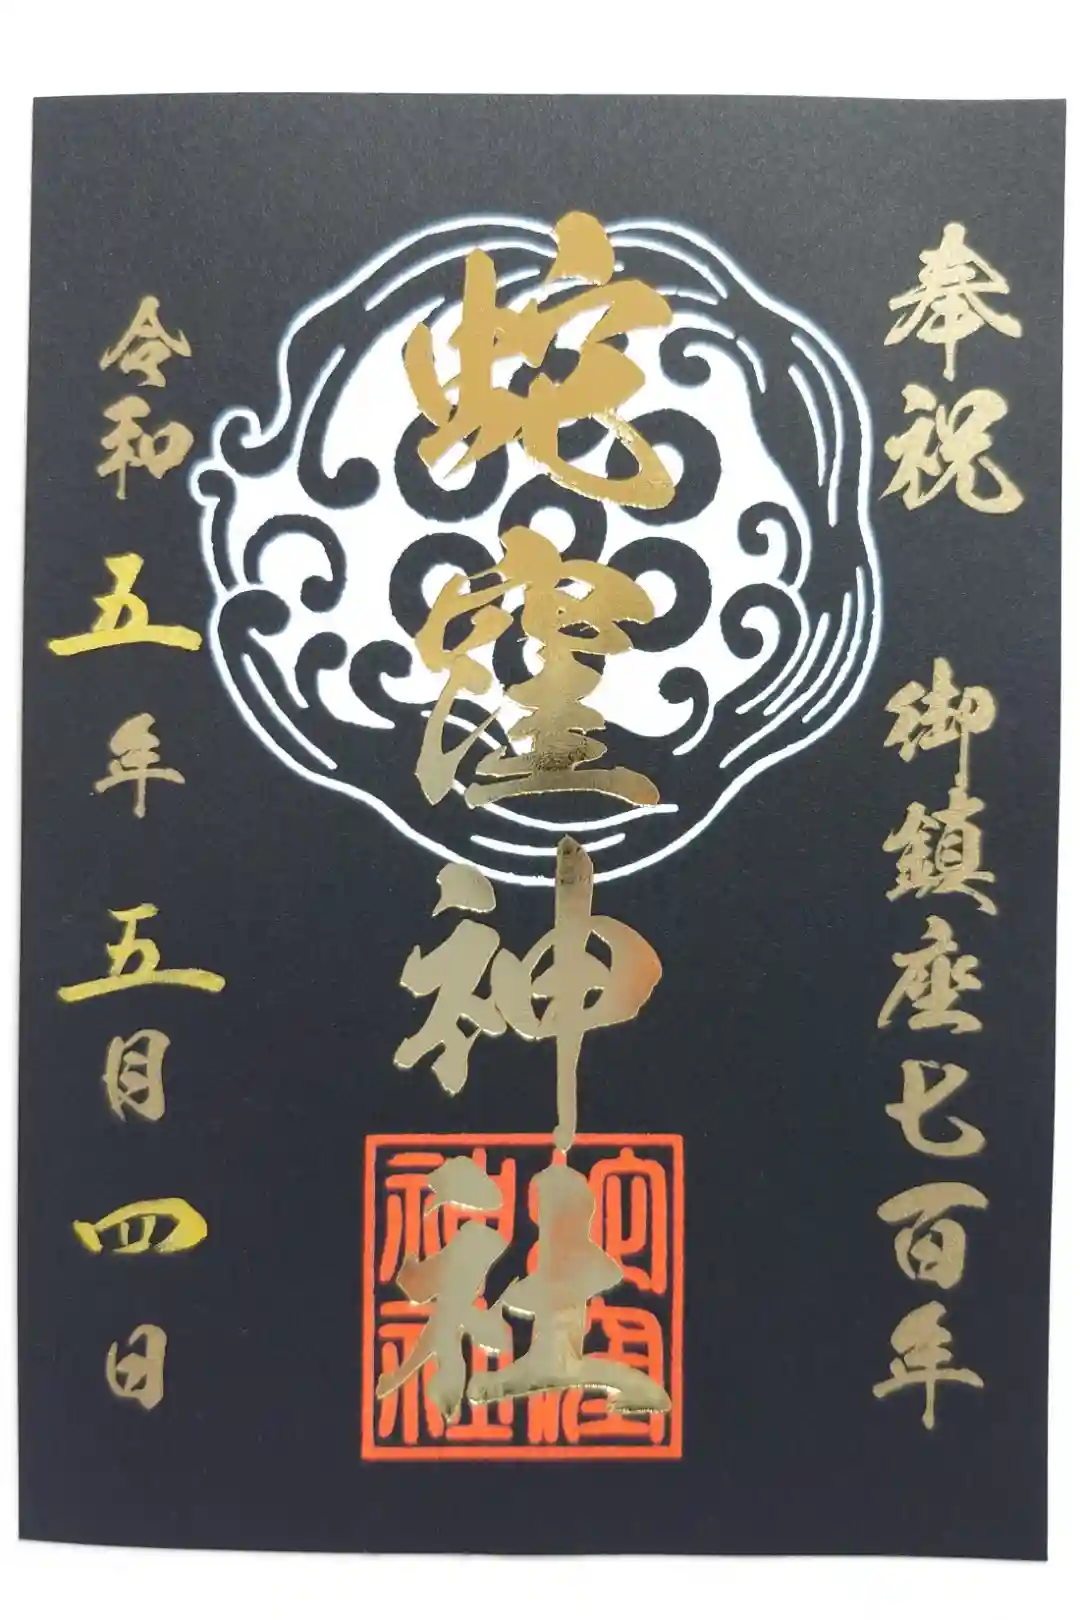 奉祝 御鎮座七百年
蛇窪神社
蛇窪
神社
令和五年五月四日